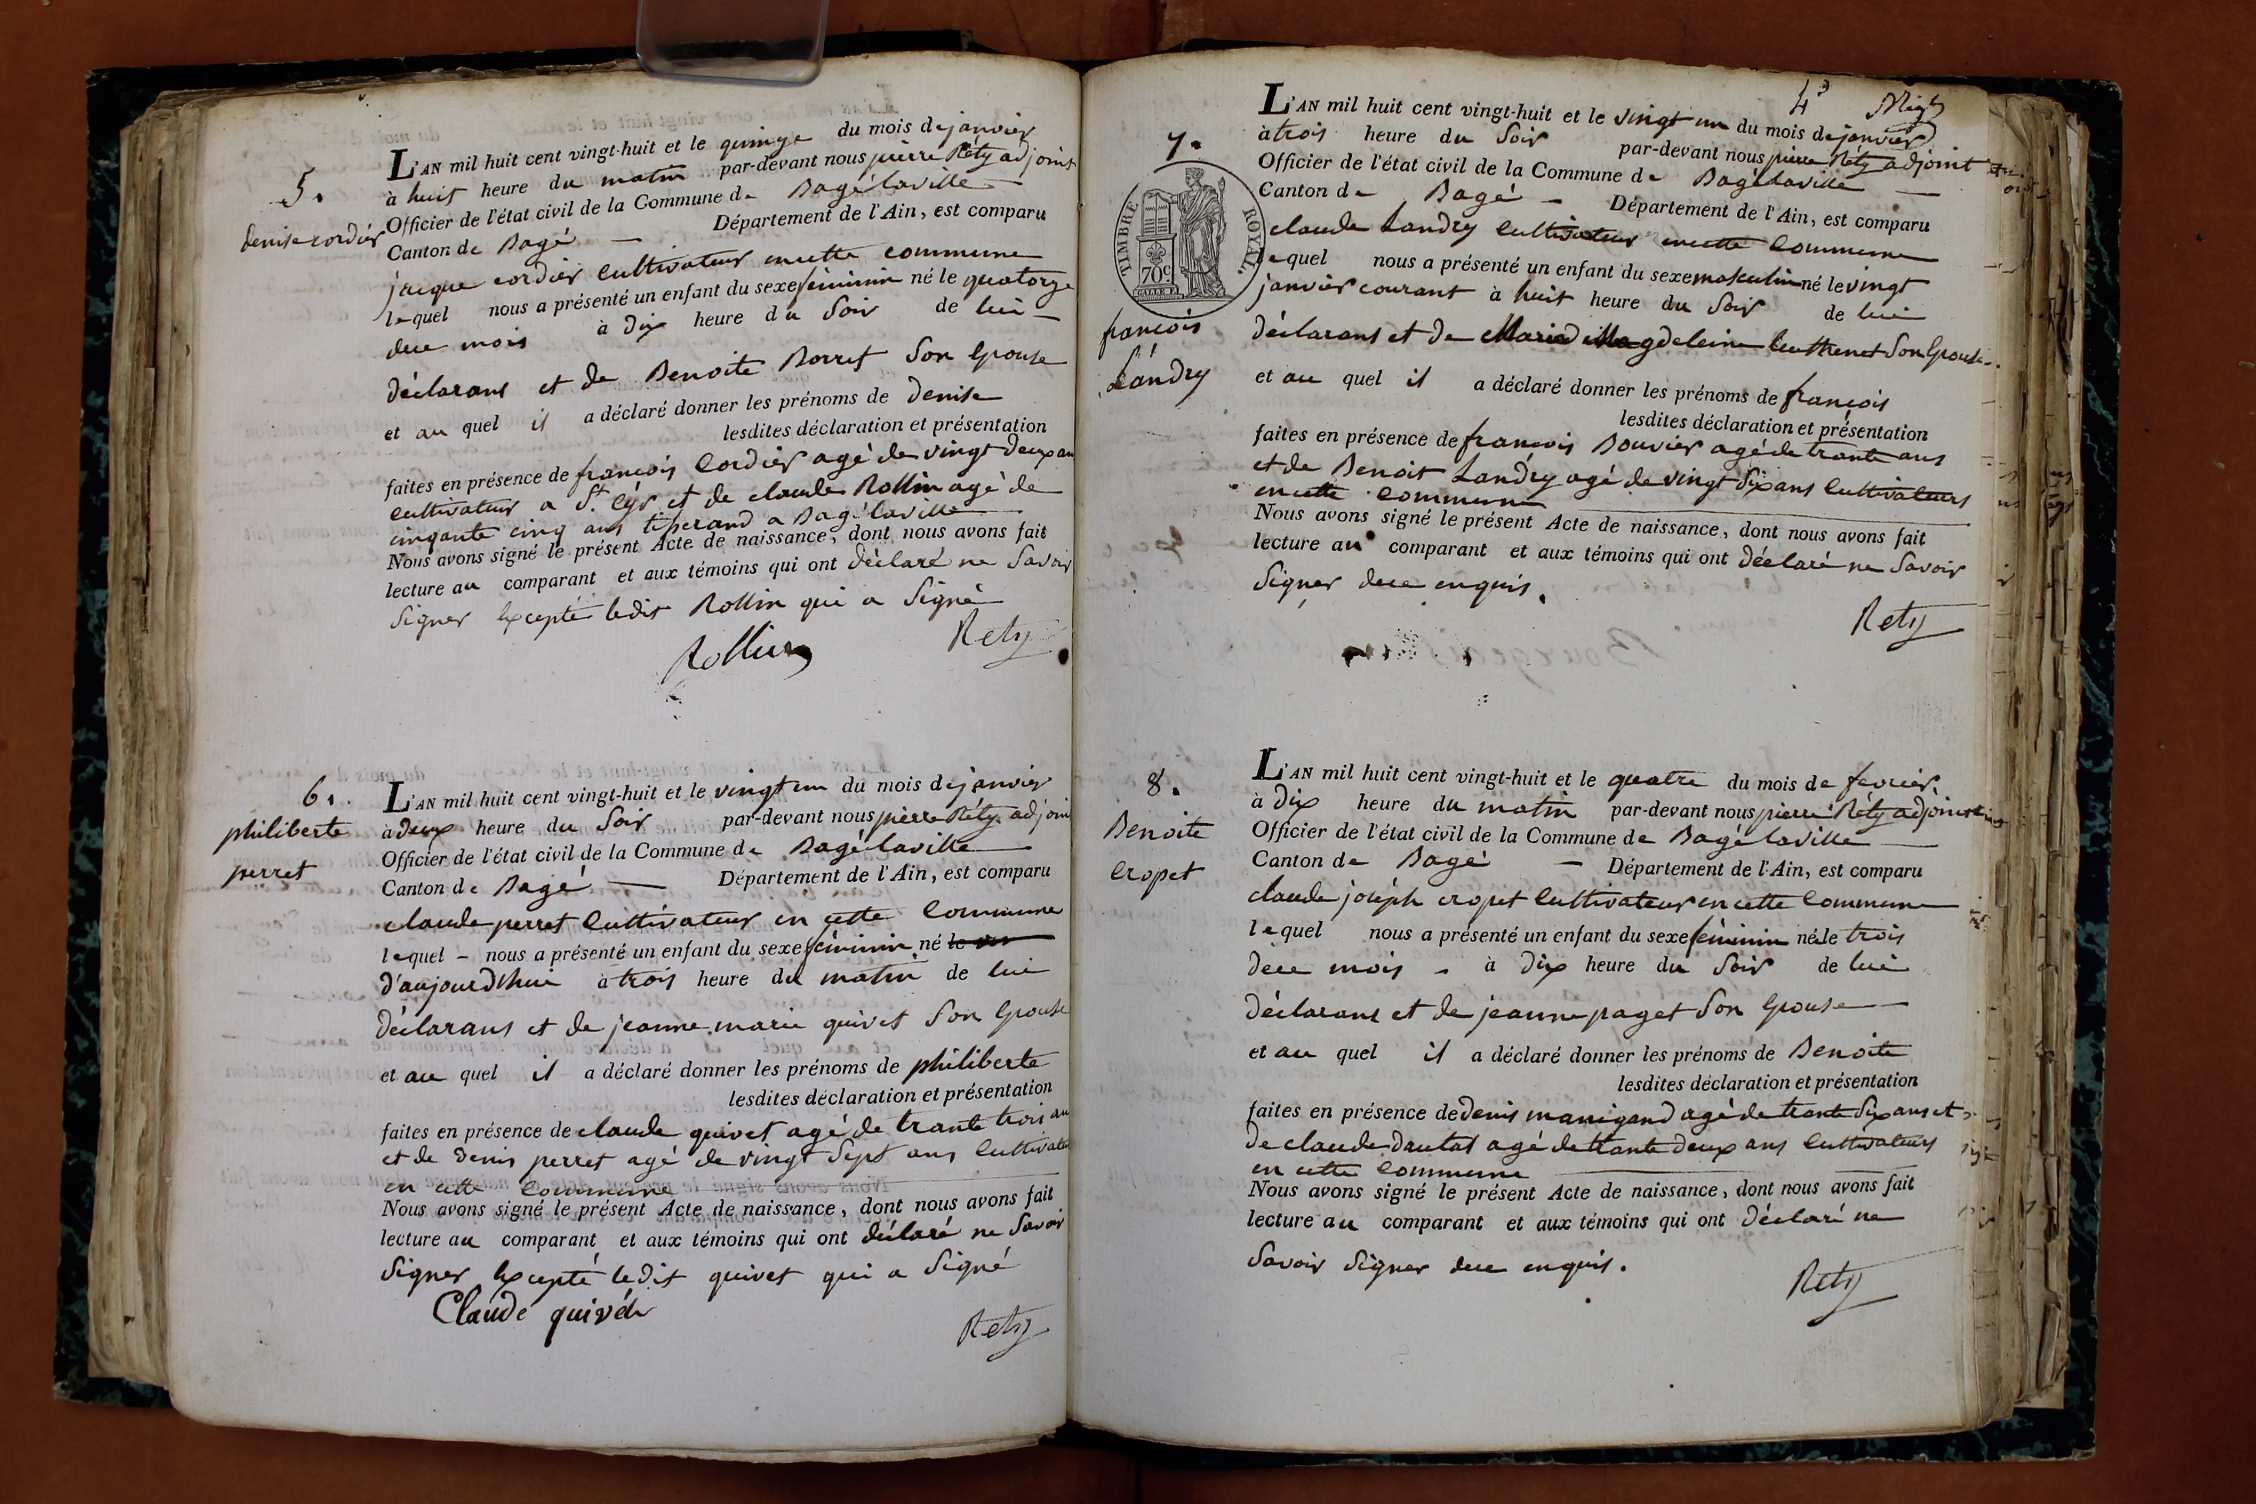 5.
denise cordier
L'AN mil huit cent vingt-huit et le quinze du mois de janvier
à huit heure du matin par-devant nous pierre Réty adjoint
Officier de l'état civil de la Commune de Bagé laville
Canton de Bagé — Département de l'Ain, est comparu
jacque cordier Cultivateur en cette commune
lequel nous a présenté un enfant du sexe féminin né le quatorze
duce mois à dix heure du Soir de lui
déclarans et de Benoite Borret Son Epouse
et au quel il a déclaré donner les prénoms de denise
lesdites déclaration et présentation
faites en présence de françois Cordier agé de vingt deux an
cultivateur a St. Cyr et de claude Rollin agé de
cinqante cinq ans tiserand a Bagé laville
Nous avons signé le présent Acte de naissance, dont nous avons fait
lecture au comparant et aux témoins qui ont déclaré ne Savoir
Signer Excepté ledit Rollin qui a Signé
Rollin Rety
6.
philiberte
perret
L'AN mil huit cent vingt-huit et le vingt un du mois de janvier
à deux heure du Soir par-devant nous pierre Réty adjoin
Officier de l'état civil de la Commune de Bagé laville
Canton de Bagé — Département de l'Ain, est comparu
claude perret Cultivateur en cette Commune
lequel – nous a présenté un enfant du sexe féminin né le
d'aujourdhui à trois heure du matin de lui
déclarans et de jeanne marie quivet Son Epouse
et au quel il a déclaré donner les prénoms de philiberte
lesdites déclaration et présentation
faites en présence de claude quivet agé de trante trois an
et de denis perret agé de vingt Sept ans Cultivateu
en cette Commune
Nous avons signé le présent Acte de naissance, dont nous avons fait
lecture au comparant et aux témoins qui ont déclaré ne Savoir
Signer Excepté ledit quivet qui a Signé
Claude quivet
Rety
4e
7.
TIMBRE ROYAL.
70c
françois
Landry
L'AN mil huit cent vingt-huit et le vingt un du mois de janvier
à trois heure du Soir par-devant nous pierre Réty adjoint
Officier de l'état civil de la Commune de Bagé laville
Canton de Bagé – Département de l'Ain, est comparu
claude Landry Cultivateur en cette Commune
lequel nous a présenté un enfant du sexe masculin né le vingt
janvier courant à huit heure du Soir de lui
déclarans et de Marie Magdeleine Son Epouse
et au quel il a déclaré donner les prénoms de françois
lesdites déclaration et présentation
faites en présence de françois Bouvier agé de trante ans
et de Benoit Landry agé de vingt Six ans Cultivateurs
en cette Commune
Nous avons signé le présent Acte de naissance, dont nous avons fait
lecture au comparant et aux témoins qui ont déclaré ne Savoir
Signer duce enquis.
Rety
8.
Benoite
Cropet
L'AN mil huit cent vingt-huit et le quatre du mois de fevrier
à dix heure du matin par-devant nous pierre Réty adjoint
Officier de l'état civil de la Commune de Bagé laville
Canton de Bagé — Département de l'Ain, est comparu
claude joseph cropet Cultivateur en cette Commune
lequel nous a présenté un enfant du sexe féminin né le trois
duce mois – à dix heure du Soir de lui
déclarans et de jeanne paget Son Epouse
et au quel il a déclaré donner les prénoms de Benoite
lesdites déclaration et présentation
faites en présence de denis manigand agé de trante Six ans et
de claude dautat agé de trante deux ans Cultivateurs
en cette Commune
Nous avons signé le présent Acte de naissance, dont nous avons fait
lecture au comparant et aux témoins qui ont déclaré ne
Savoir Signer duce enquis.
Rety